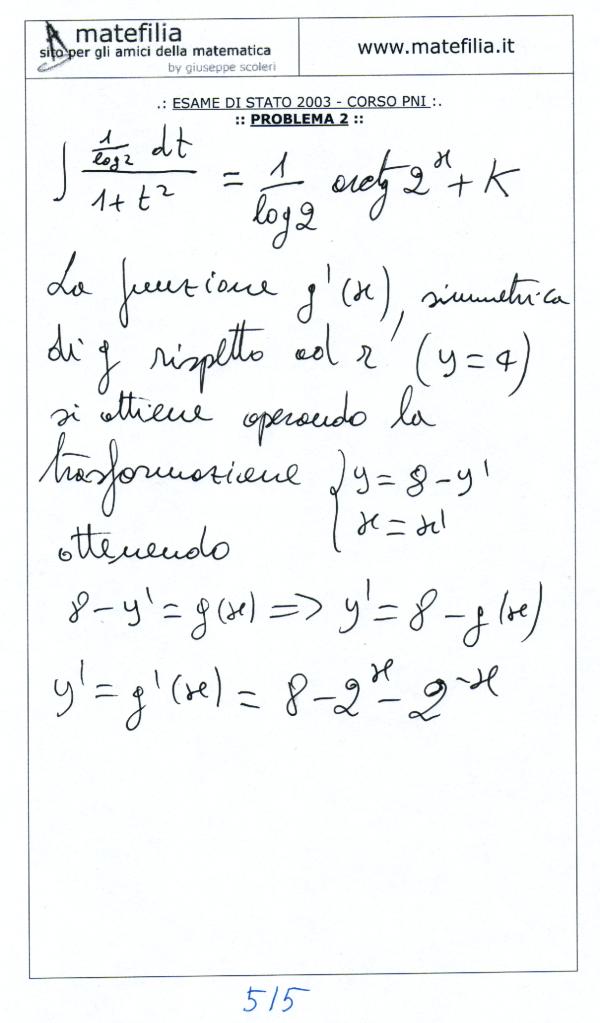 matefilia
sito per gli amici della matematica
by giuseppe scoleri
www.matefilia.it
.: ESAME DI STATO 2003 - CORSO PNI :.
:: PROBLEMA 2 ::
∫ (1/log2 dt)/(1+t²) = 1/log2 arctg 2^x + K
La funzione g'(x), simmetrica
di g rispetto ad r (y = 4)
si ottiene operando la
trasformazione { y = 8 - y'
x = x'
ottenendo
8 - y' = g(x) => y' = 8 - g(x)
y' = g'(x) = 8 - 2^x - 2^-x
5/5